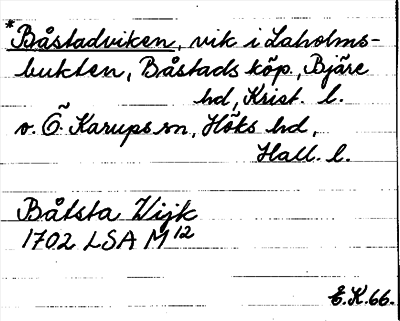 *Båstadviken, vik i Laholms-
bukten, Båstads köp., Bjäre
hd, Krist. l.
o. Ö. Karups sn, Höks hd,
Hall. l.
Båtsta Wijk
1702 LSA M 12
E.K.66.